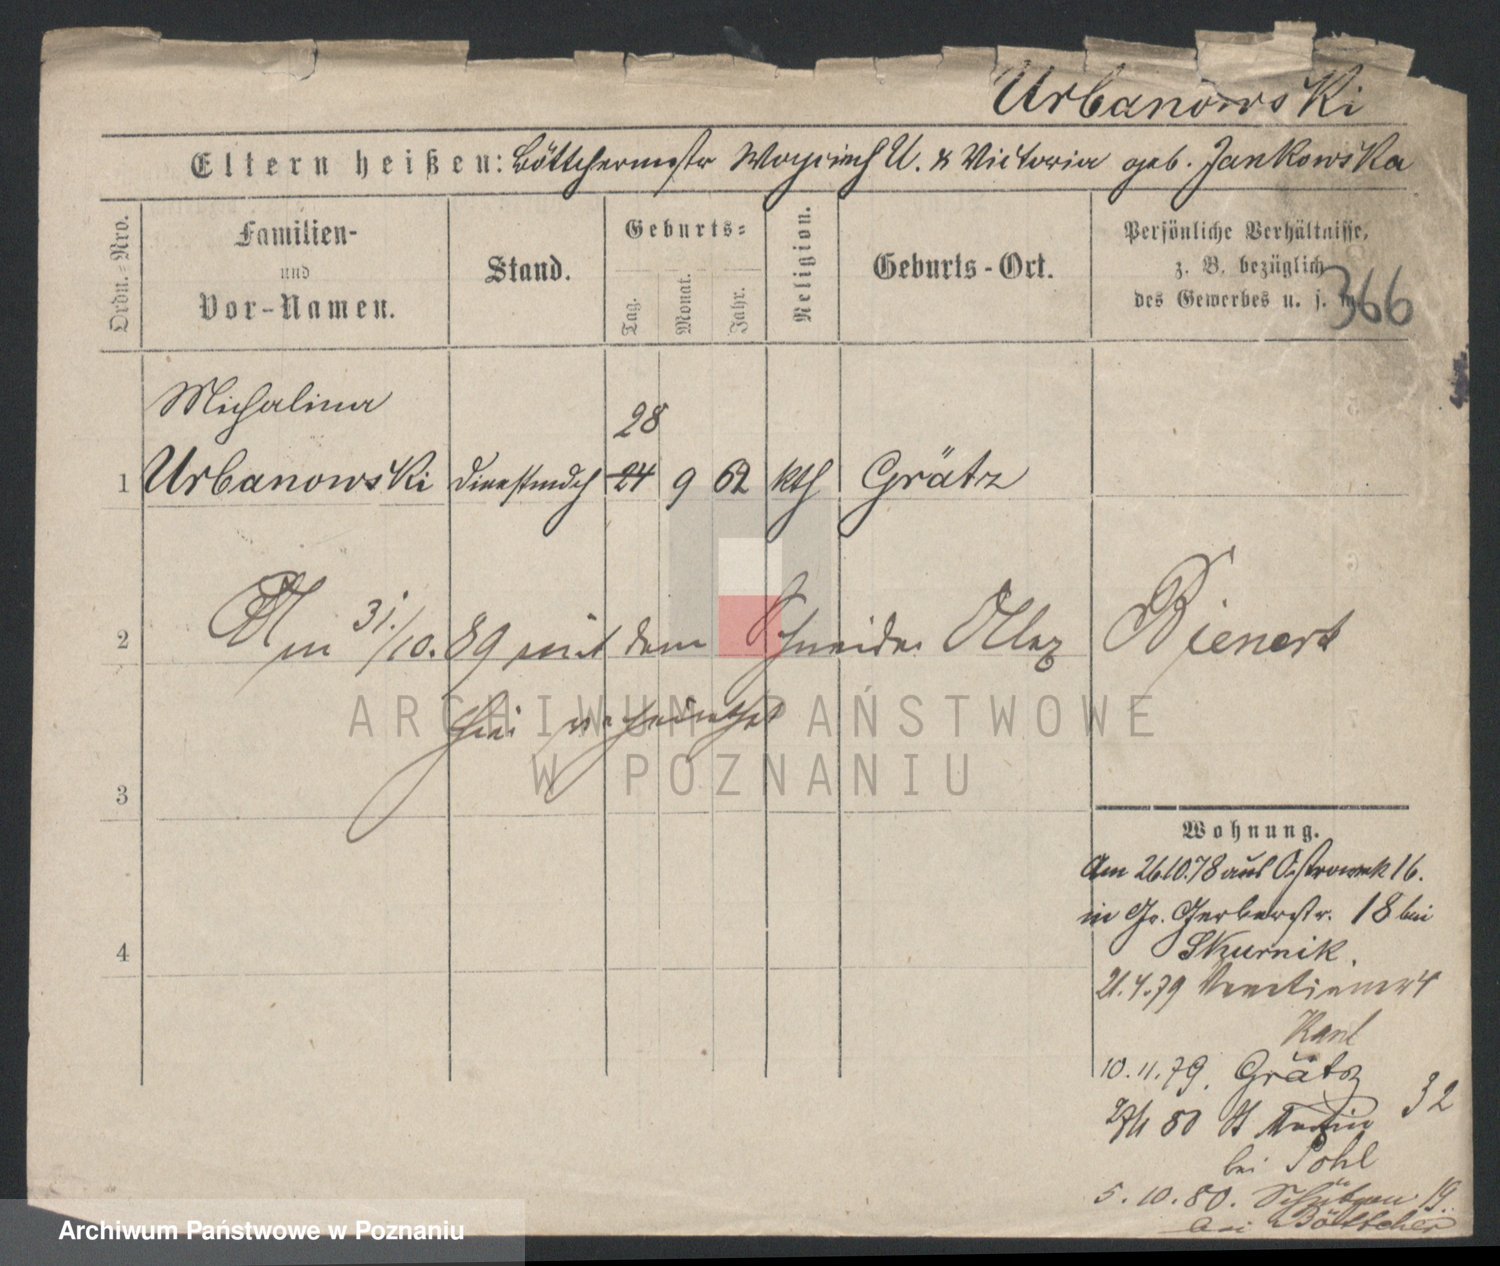 Urbanowski
Eltern heißen: Böttchermstr Woyciech U. & Victoria geb. Jankowska
Ordn.-Nro.
Familien-
und
Vor-Namen.
Stand.
Geburts-
Tag.
Monat.
Jahr.
Religion.
Geburts-Ort.
Persönliche Verhältnisse,
z. B. bezüglich
des Gewerbes u. s. w.
366
Michalina
28
1 Urbanowski Dienstmdch 24 9 62 kth Grätz
2 Am 31./10.89 mit dem Schneider Alex Bienert
hier verheirathet
3
4
Wohnung.
Am 26.10.78 aus Ostrowek 16.
in Gr. Gerberstr. 18 bei
Skurnik.
21.4.79
10.11.79. Grätz
80 St Martin 32
bei Pohl
5.10.80. Schützen 19.
bei Böttcher
ARCHIWUM PAŃSTWOWE
W POZNANIU
Archiwum Państwowe w Poznaniu